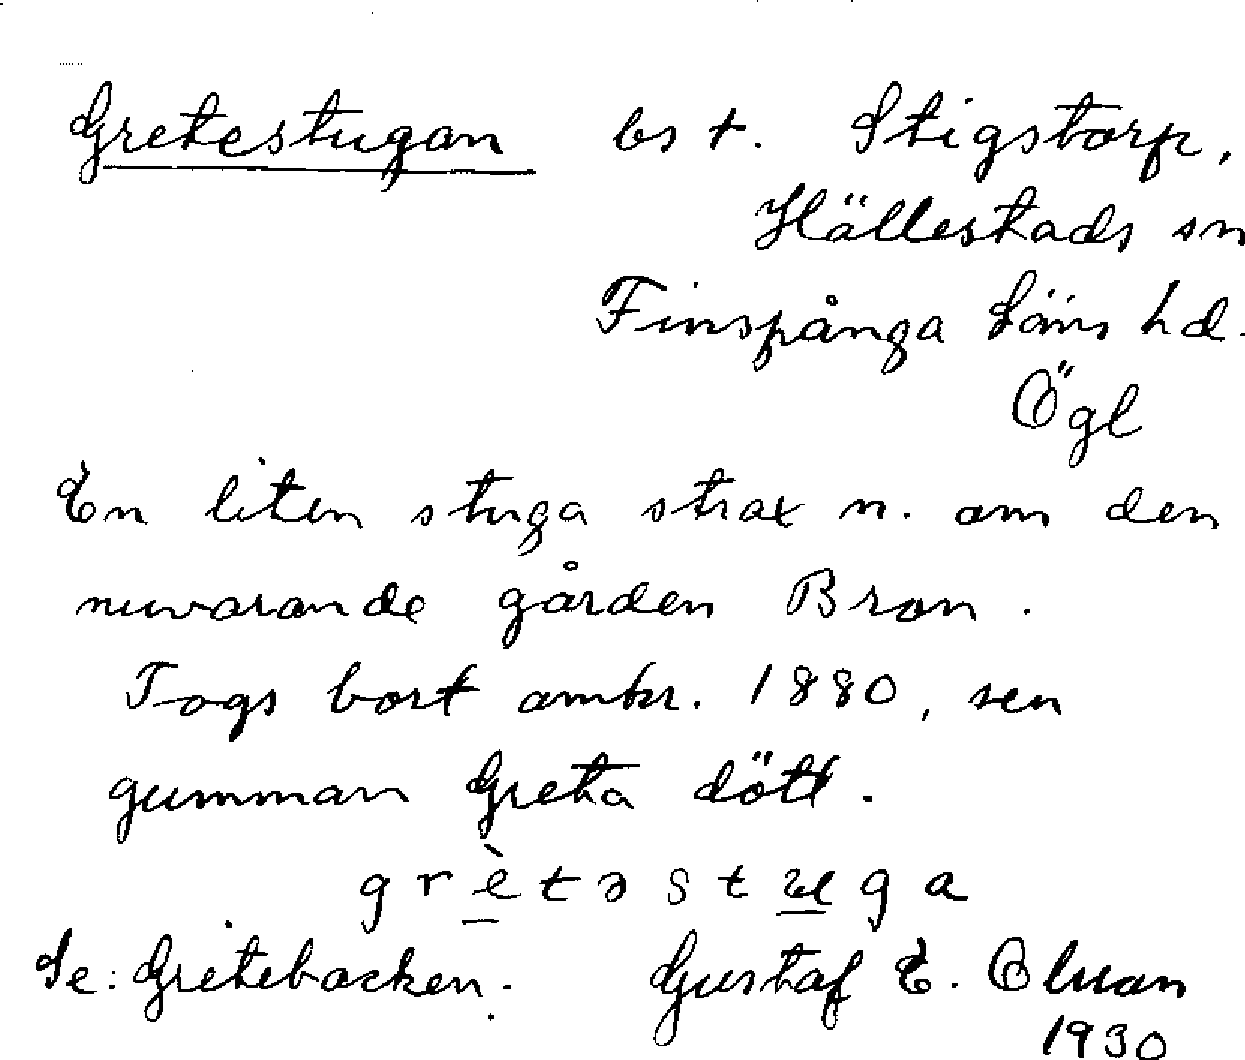 Gretestugan bs t. Stigstorp,
Hällestads sn
Finspånga läns hd.
Ögl
En liten stuga strax n. om den
nuvarande gården Bron.
Togs bort omkr. 1880, sen
gumman Greta dött.
grètəstuga
Se: Gretebacken. Gustaf E.
1930